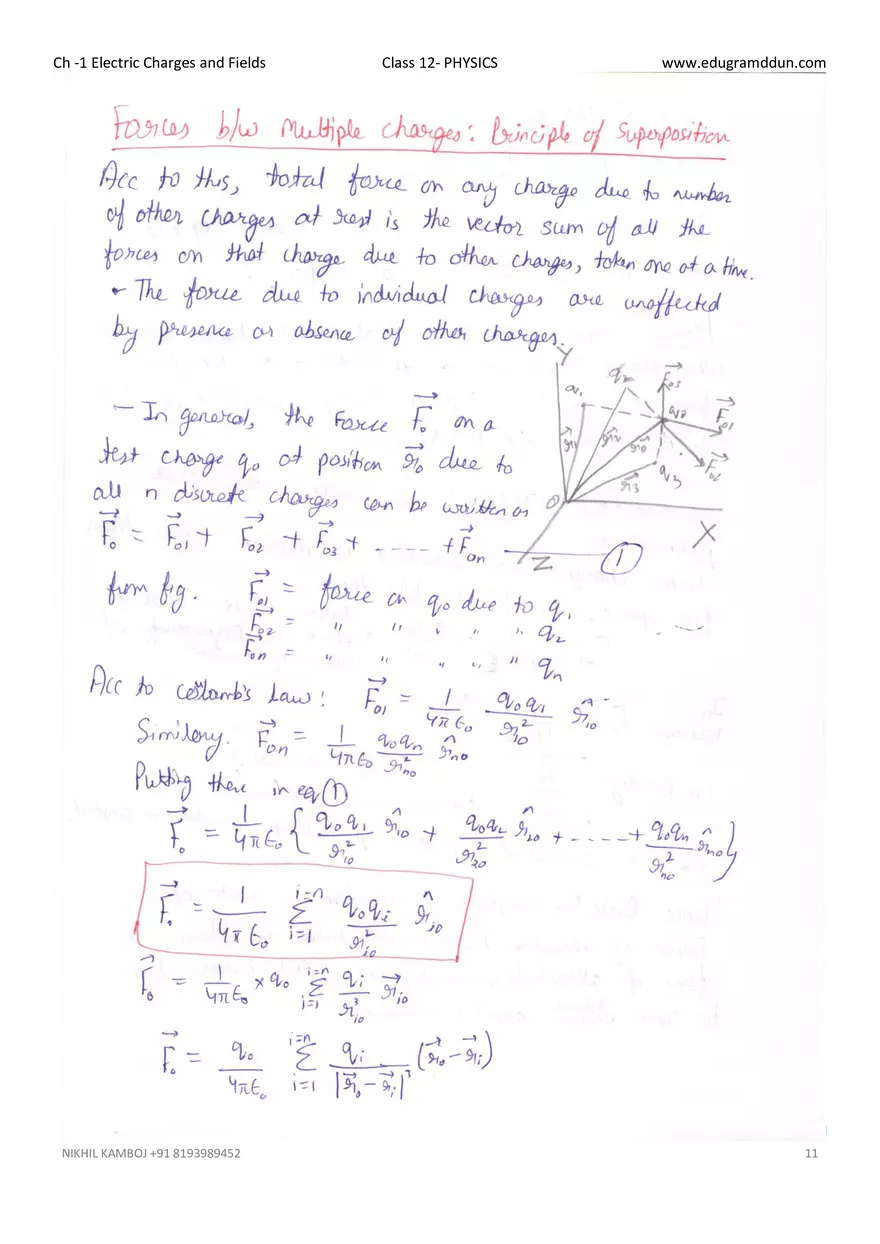 Ch -1 Electric Charges and Fields Class 12- PHYSICS www.edugramddun.com
Forces b/w Multiple charges: Principle of Superposition
Acc to this, total force on any charge due to number
of other charges at rest is the vector sum of all the
forces on that charge due to other charges, taken one at a time.
• The force due to individual charges are unaffected
by presence or absence of other charges.
Y
q₁ q₂ F⃗₀₃ q₀ F⃗₀₁
r⃗₁ r⃗₂ r⃗₀ q₃ F⃗₀₂
r⃗₃
O X Z
– In general, the Force F⃗₀ on a
test charge q₀ at position r⃗₀ due to
all n discrete charges can be written as
F⃗₀ = F⃗₀₁ + F⃗₀₂ + F⃗₀₃ + ----- + F⃗₀ₙ ——— ①
from fig. F⃗₀₁ = force on q₀ due to q₁
F⃗₀₂ = " " " " " q₂
F⃗₀ₙ = " " " " " qₙ
Acc to Coulomb's Law: F⃗₀₁ = 1/4πε₀ q₀q₁/r₁₀² r̂₁₀
Similary. F⃗₀ₙ = 1/4πε₀ q₀qₙ/rₙ₀² r̂ₙ₀
Putting there in eq ①
F⃗₀ = 1/4πε₀ { q₀q₁/r₁₀² r̂₁₀ + q₀q₂/r₂₀² r̂₂₀ + ----- + q₀qₙ/rₙ₀² r̂ₙ₀ }
F⃗₀ = 1/4πε₀ Σ i=1 i=n q₀qᵢ/rᵢ₀² r̂ᵢ₀
F⃗₀ = 1/4πε₀ × q₀ Σ i=1 i=n qᵢ/rᵢ₀³ r⃗ᵢ₀
F⃗₀ = q₀/4πε₀ Σ i=1 i=n qᵢ/|r⃗₀-r⃗ᵢ|³ (r⃗₀-r⃗ᵢ)
NIKHIL KAMBOJ +91 8193989452 11